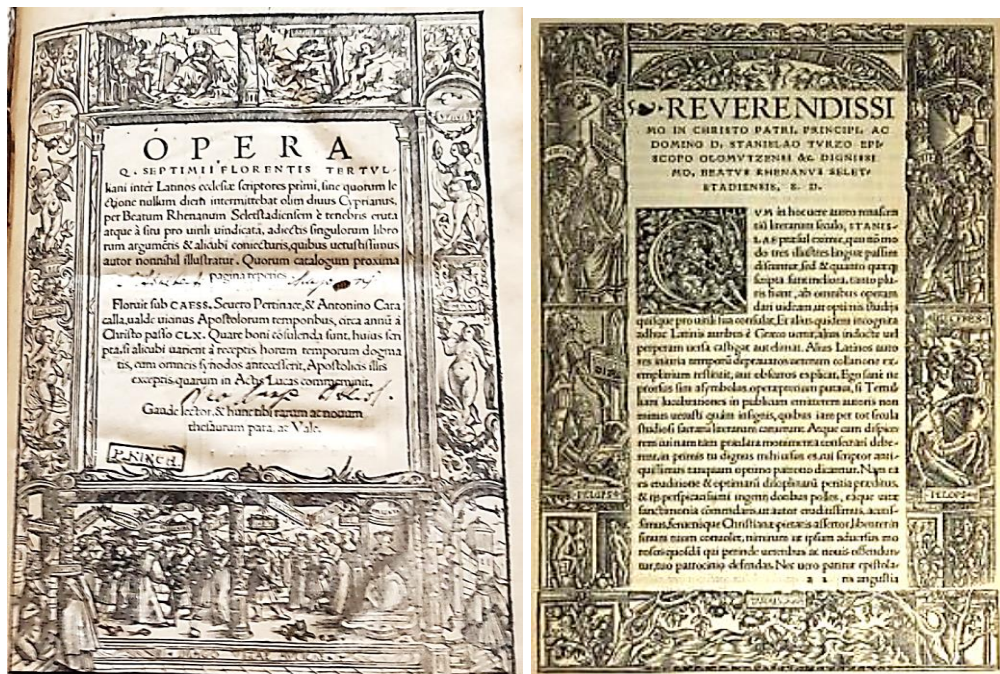 OPERA
Q. SEPTIMII FLORENTIS TERTVL-
liani inter Latinos ecclesiæ scriptores primi, sine quorum le
ctione nullum diem intermittebat olim diuus Cyprianus,
per Beatum Rhenanum Seletstadiensem è tenebris eruta
atque à situ pro uirili uindicata, adiectis singulorum libro
rum argumentis & alicubi coniecturis, quibus uetustissimus
autor nonnihil illustratur. Quorum catalogum proxima
pagina reperies.
Floruit sub CAESS. Seuero Pertinace, & Antonino Cara
calla, ualde uianus Apostolorum temporibus, circa annũ à
Christo passo CLX. Quare boni cõsulenda sunt, huius scri
pta, si alicubi uarient à receptis horum temporum dogma
tis, cum omneis synodos antecesserit, Apostolicis illis
exceptis quarum in Actis Lucas commeminit.
Gaude lector, & hunc tibi rarum ac nouum
thesaurum para, ac Vale.
REVERENDISSI
MO IN CHRISTO PATRI, PRINCIPI, AC
DOMINO D. STANISLAO TVRZO EPI-
SCOPO OLOMVTZENSI &c. DIGNISSI
MO, BEATVS RHENANVS SELET-
STADIENSIS, S. D.
CVM in hoc uere aureo renascen
tiũ literarum seculo, STANIS-
LAE præsul eximie, qui nõ mo
do tres illustres linguæ passim
discuntur, sed & quanto quæq;
scripta sunt meliora, tanto plu-
ris fiunt, ab omnibus operam
dari uideam, ut optimis studijs
quisque pro uirili sua consulat, Et alius quidem incognita
adhuc Latinis auribus è Græco uertat, alius indocte uel
perperam uersa castiget aut
Latinos auto
res iniuria temporũ deprauatos ueterum collatione ex-
emplarium restituat, aut obscuros explicet, Ego sane ne
prorsus sim asymbolus, operæprecium putaui, si Tertul
liani lucubrationes in publicum emitterem autoris non
minus uetusti quàm insignis, quibus iam per tot secula
studiosi sacrarũ literarum caruerunt. Atque cum dispice
rem cui nam tam præclara monimenta consecrari debe-
rent, in primis tu dignus mihi uisus es, cui scriptor anti-
quissimus tanquam optimo patrono dicaretur. Nam ea
es eruditione & optimarũ disciplinarũ peritia præditus,
& ijs perspicacissimi ingenij dotibus polles, eaque uitæ
sanctimonia
ut autor eruditissimus,
simus, Christianæ pietatis assertor, libenter in
sinum tuum
nimirum ut ipsum aduersus mo
rosos quosdã qui perinde ueteribus ac nouis offendun-
tur, tuo patrocinio defendas. Nec uero patitur epistola-
a 2 ris angustia
CERES
PELOPS
PELOPS